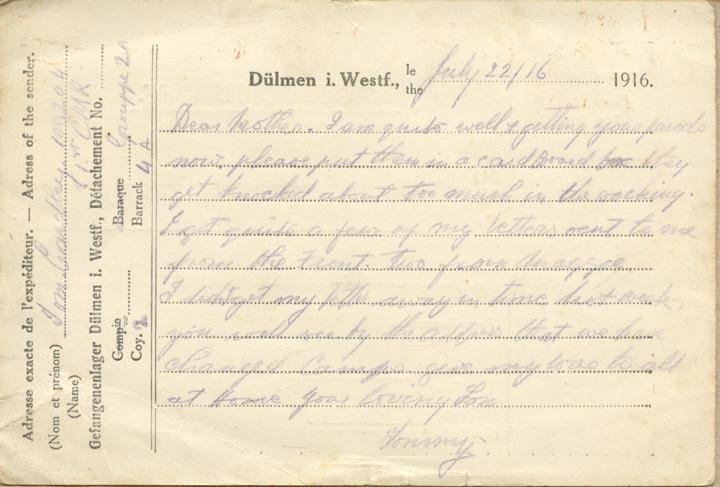 Adresse exacte de l'expéditeur. — Adress of the sender.
(Nom et prénom) Tom
(Name)
Gefangenenlager Dülmen i. Westf., Détachement No.
Compie Baraque Grouppe 2A
Coy. 2 Barrack 4 A
Dülmen i. Westf., le the July 22/16 1916.
Dear Mother. I am quite well & getting your parcels
now, please put them in a cardboard box they
get knocked about too much in the sacking.
I got quite a few of my letters sent to me
from the Front. Two from Maggee.
I didt get my letter away in time last week
you will see by the address that we have
changed Camps give my love to all
at Home your loving Son
Tommy